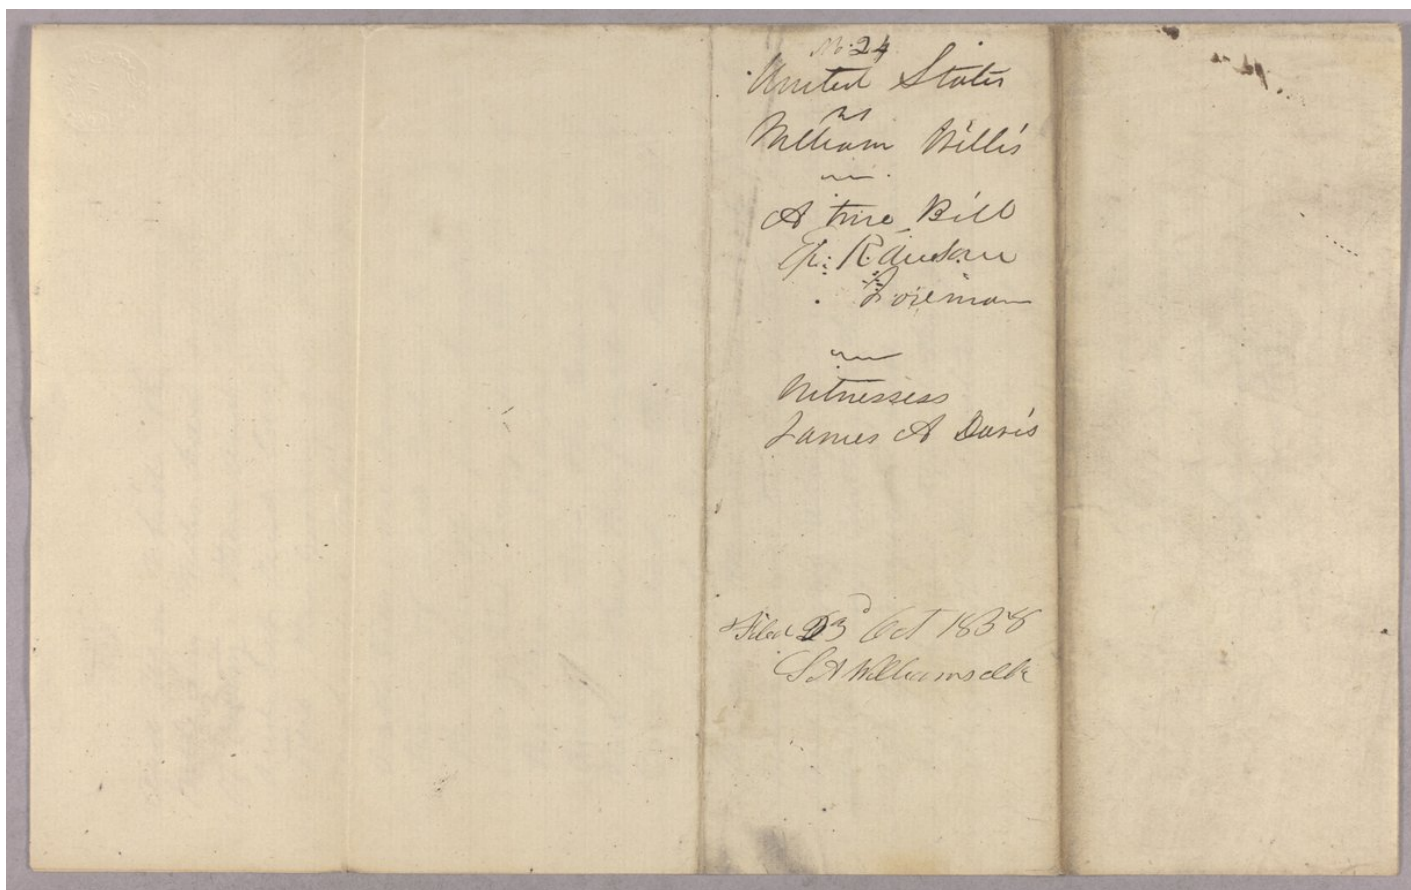 No. 24
United States
vs
William Willis
A true Bill
Foreman
Witnessess
James A Davis
Filed 23d Oct 1838
S A Williams clk